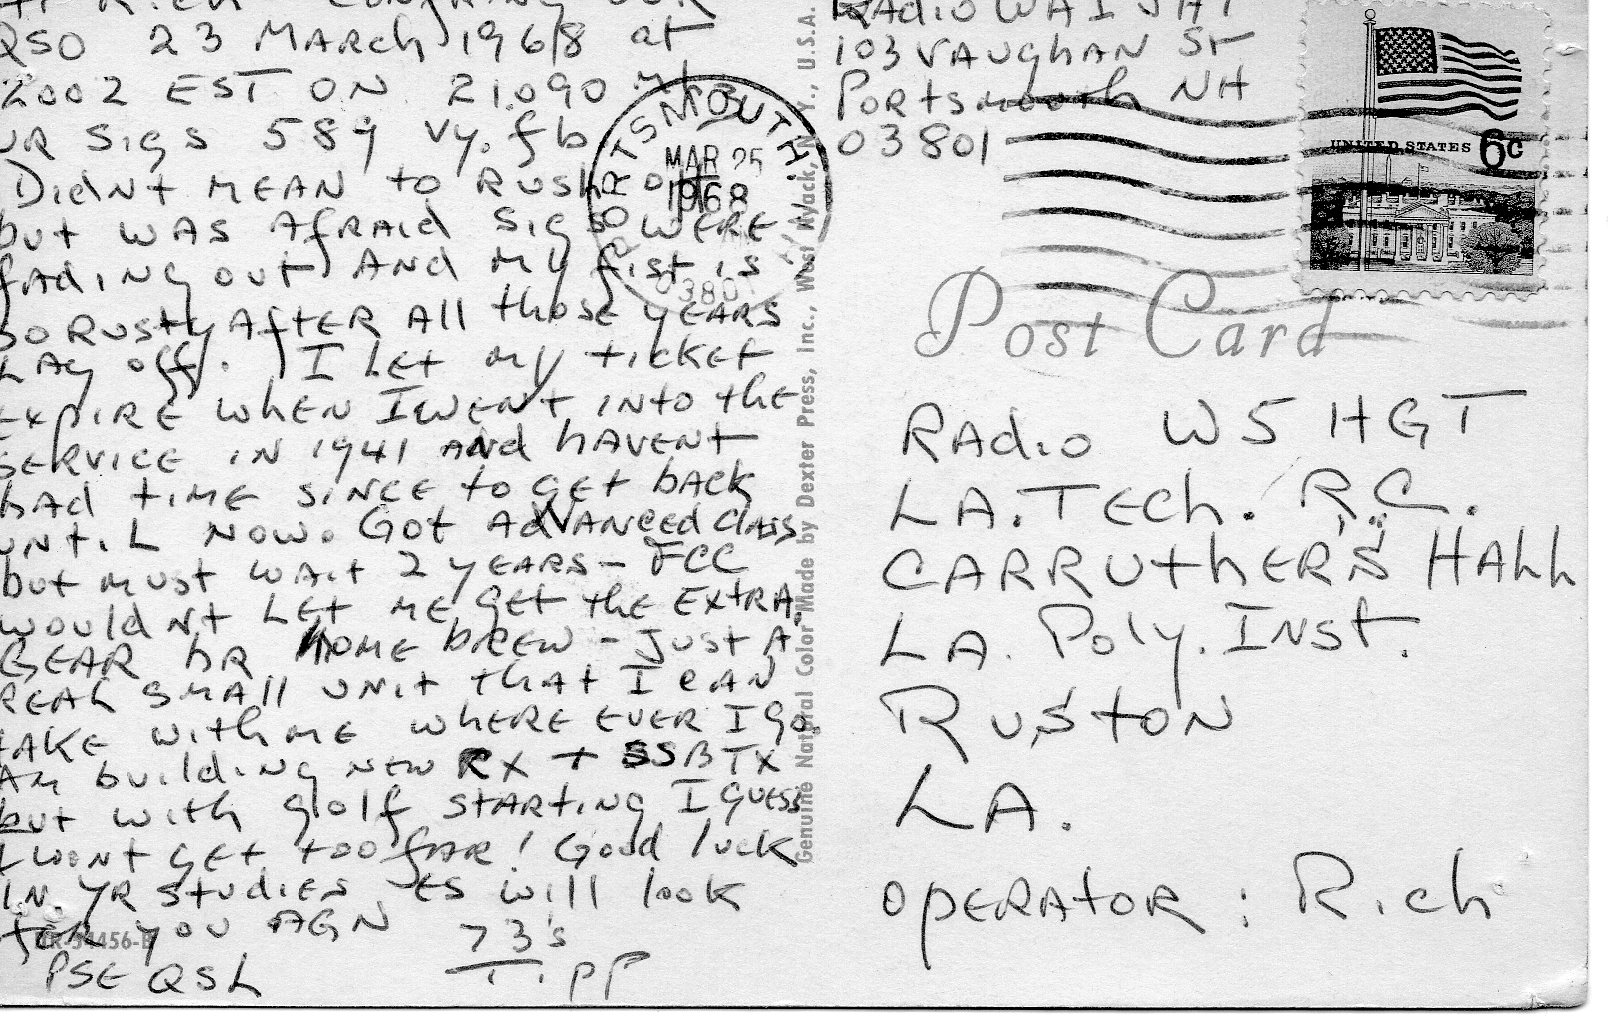 Hi Rich CONFIRING OUR
QSO 23 MARch 1968 at
2002 EST ON 21.090 M
UR Sigs 589 vy. fb
Didnt MEAN to RUSh
but WAS AfRAId sigs WERE
fAdiNg out ANd My fist is
SO RUSty AftER All thosE yEARS
LAy off. I LEt my ticKEt
ExpIRE whEN I WENt INto thE
SERVICE IN 1941 ANd hAVENt
hAd tIME SINCE to gEt bAck
UNtiL NOW. Got AdVANCEd CLASS
but must WAit 2 yEARS - FCC
wouldNt LEt ME gEt thE ExtRA.
GEAR hR HOME bREW - JUSt A
REAL SMAll UNit thAt I CAN
tAKE with ME WhERE EVER I go
AM buildiNg NEW RX + SSB TX
but with golf StARtiNg I guEss
I WONt gEt too fAR! Good luck
IN YR StudiES ES will look
foR you AGN 73's
PSE QSL Tipp
UR-34456-B
Genuine Natural Color Made by Dexter Press, Inc., West Nyack, N.Y., U.S.A.
RAdio WA1JHT
103 VAughAN St
PORtsmouth NH
03801
PORTSMOUTH, N.H.
MAR 25
1968
03801
UNITED STATES 6c
Post Card
RAdio W5HGT
LA. TEch. R.C.
CARRUthERS HAll
LA. Poly. INst.
RUStON
LA.
opERAtoR: Rich